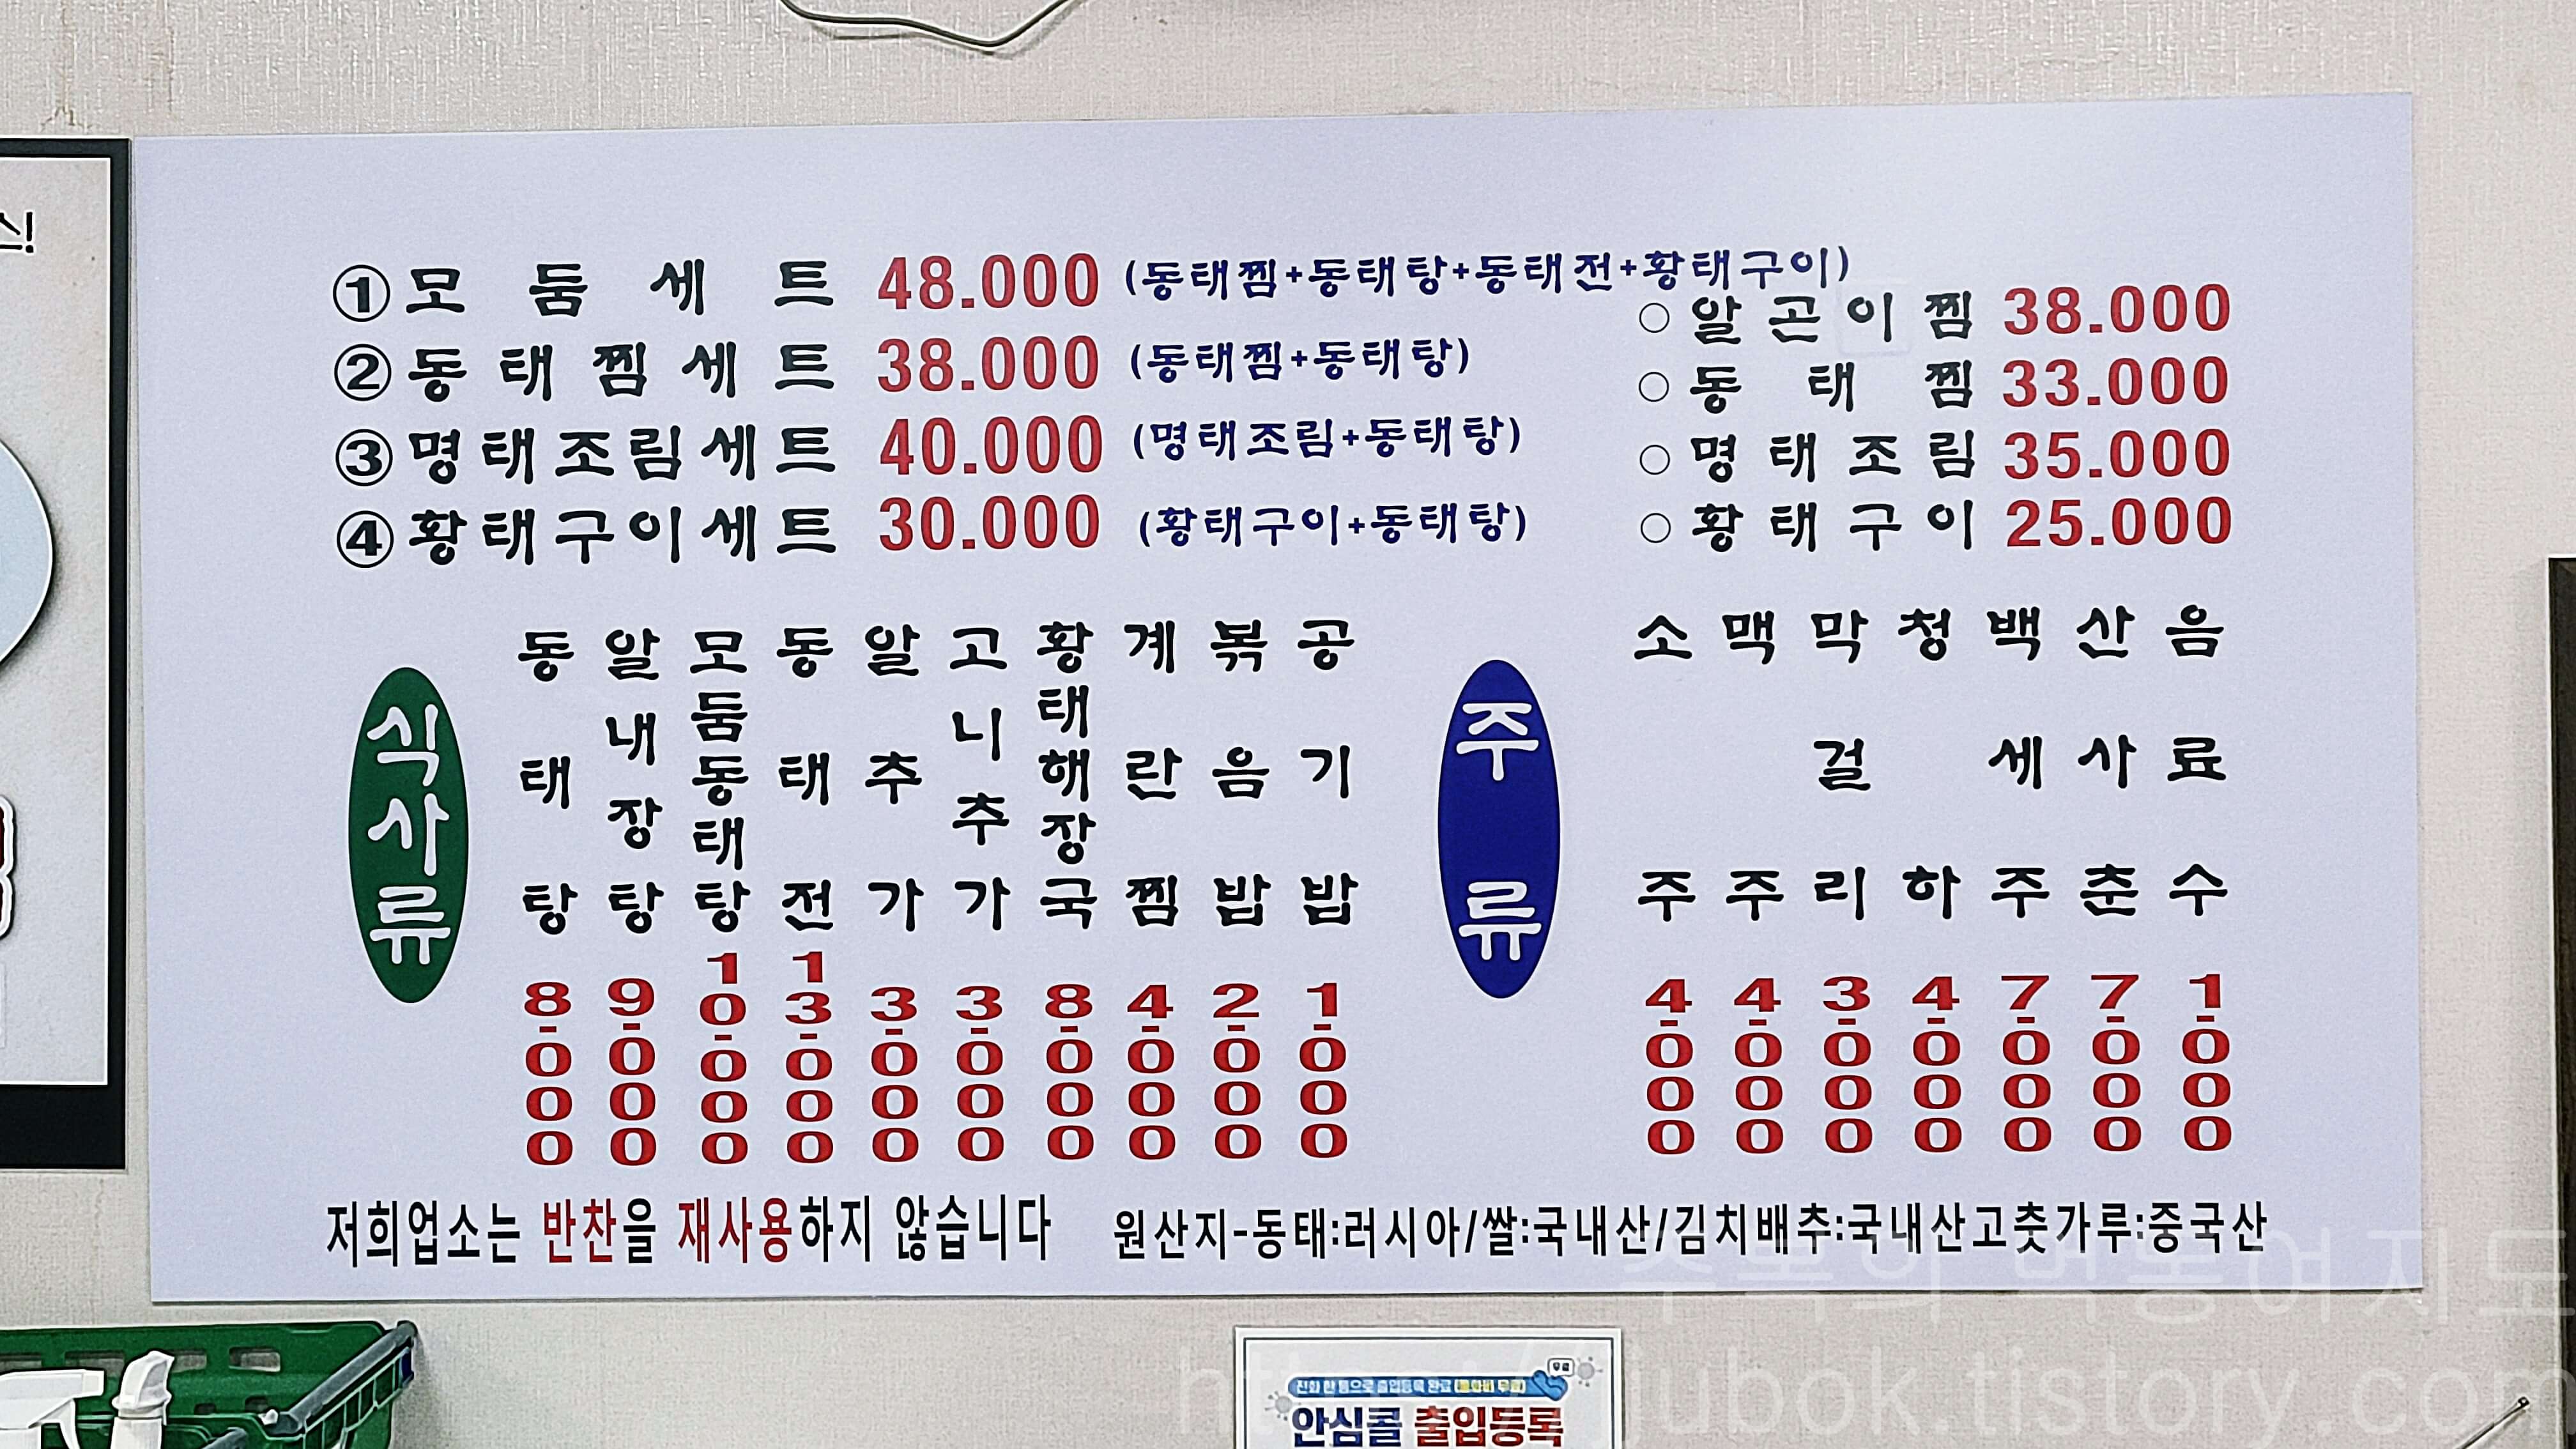 ① 모둠세트 48.000 (동태찜+동태탕+동태전+황태구이)
② 동태찜세트 38.000 (동태찜+동태탕)
③ 명태조림세트 40.000 (명태조림+동태탕)
④ 황태구이세트 30.000 (황태구이+동태탕)
○ 알곤이찜 38.000
○ 동태찜 33.000
○ 명태조림 35.000
○ 황태구이 25.000
식사류
동태탕 8.000
알내장탕 9.000
모둠동태탕 10.000
동태전 13.000
알추가 3.000
고니추가 3.000
황태해장국 8.000
계란찜 4.000
볶음밥 2.000
공기밥 1.000
주류
소주 4.000
맥주 4.000
막걸리 3.000
청하 4.000
백세주 7.000
산사춘 7.000
음료수 1.000
저희업소는 반찬을 재사용하지 않습니다
원산지-동태:러시아/쌀:국내산/김치배추:국내산고춧가루:중국산
주복의 먹동여지도
https://jubok.tistory.com
전화 한 통으로 출입등록 완료
무료
안심콜 출입등록